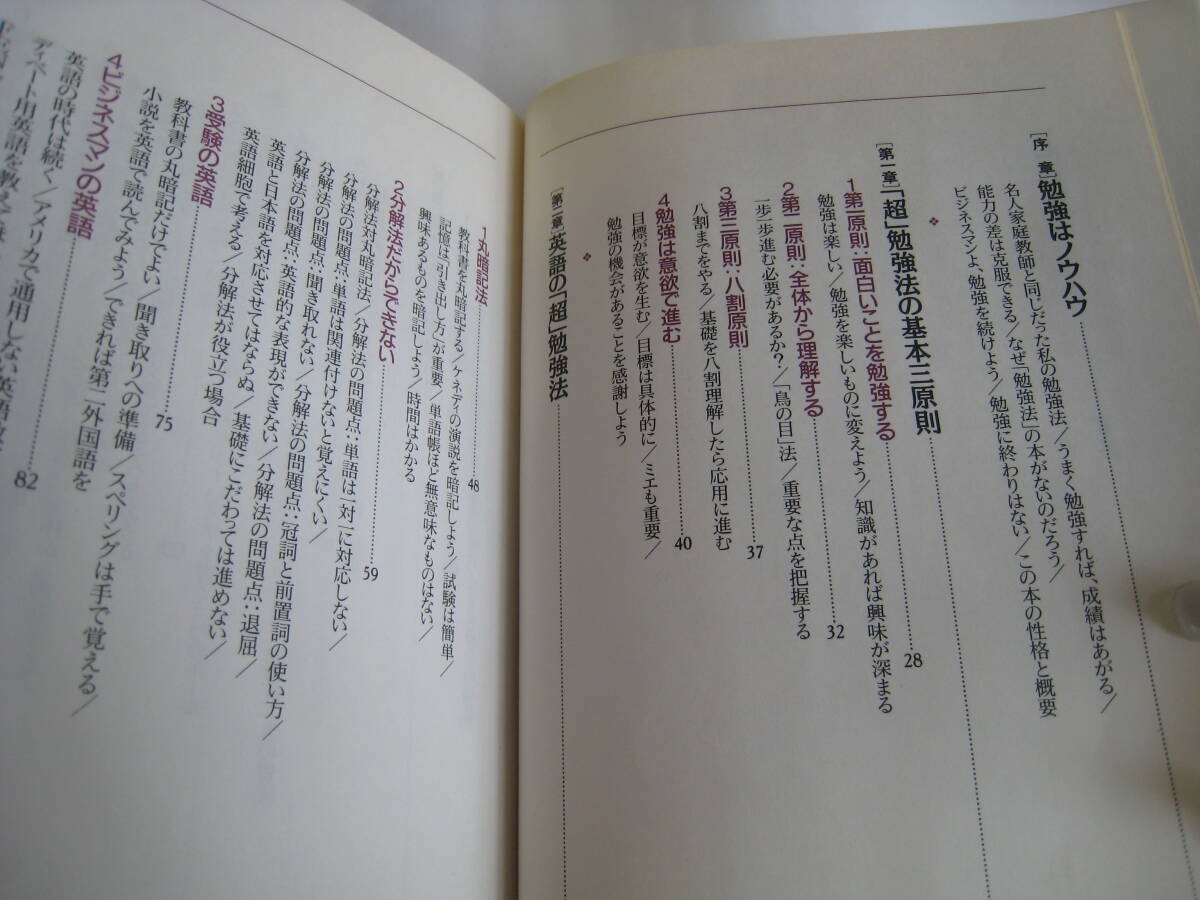 [序 章]勉強はノウハウ
名人家庭教師と同じだった私の勉強法／うまく勉強すれば、成績はあがる／
能力の差は克服できる／なぜ「勉強法」の本がないのだろう／
ビジネスマンよ、勉強を続けよう／勉強に終わりはない／この本の性格と概要
[第一章]「超」勉強法の基本三原則
1第一原則:面白いことを勉強する 28
勉強は楽しい／勉強を楽しいものに変えよう／知識があれば興味が深まる
2第二原則:全体から理解する 32
一歩一歩進む必要があるか?／「鳥の目」法／重要な点を把握する
3第三原則:八割原則 37
八割までをやる／基礎を八割理解したら応用に進む
4勉強は意欲で進む 40
目標が意欲を生む／目標は具体的に／ミエも重要／
勉強の機会があることを感謝しよう
[第二章]英語の「超」勉強法
1丸暗記法 48
教科書を丸暗記する／ケネディの演説を暗記しよう／試験は簡単／
記憶は「引き出し方」が重要／単語帳ほど無意味なものはない／
興味あるものを暗記しよう／時間はかかる
2分解法だからできない 59
分解法対丸暗記法／分解法の問題点:単語は一対一に対応しない／
分解法の問題点:単語は関連付けないと覚えにくい／
分解法の問題点:聞き取れない／分解法の問題点:冠詞と前置詞の使い方／
分解法の問題点:英語的な表現ができない／分解法の問題点:退屈／
英語と日本語を対応させてはならぬ／基礎にこだわっては進めない／
英語細胞で考える／分解法が役立つ場合
3受験の英語 75
教科書の丸暗記だけでよい／聞き取りへの準備／スペリングは手で覚える／
小説を英語で読んでみよう／できれば第二外国語を
4ビジネスマンの英語 82
英語の時代は続く／アメリカで通用しない英語
ディベート用英語を教え